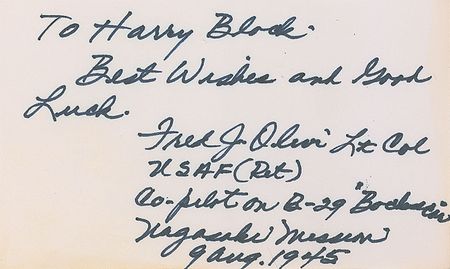 To Harry Block.
Best Wishes and Good
Luck.
Fred J. Olivi Lt Col
USAF (Ret)
Co-pilot on B-29 "Bockscar"
Nagasaki Mission
9 Aug. 1945